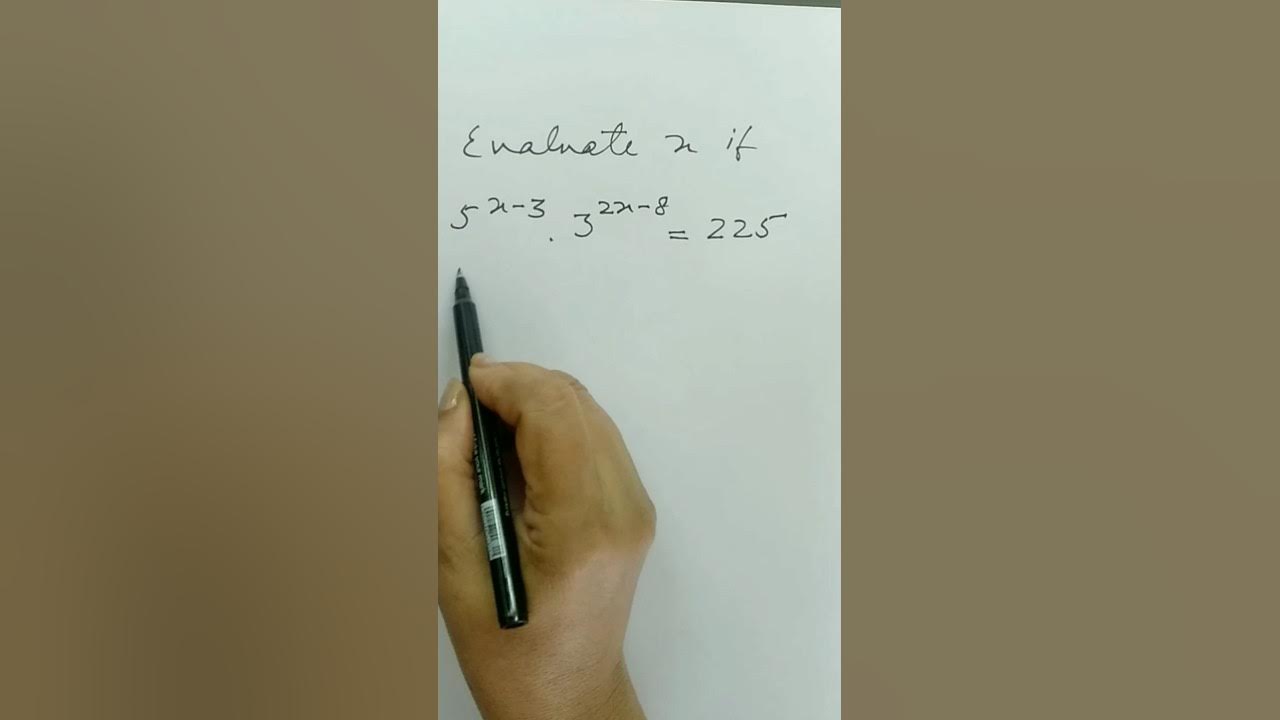 Evaluate x if
5^{x-3} . 3^{2x-8} = 225